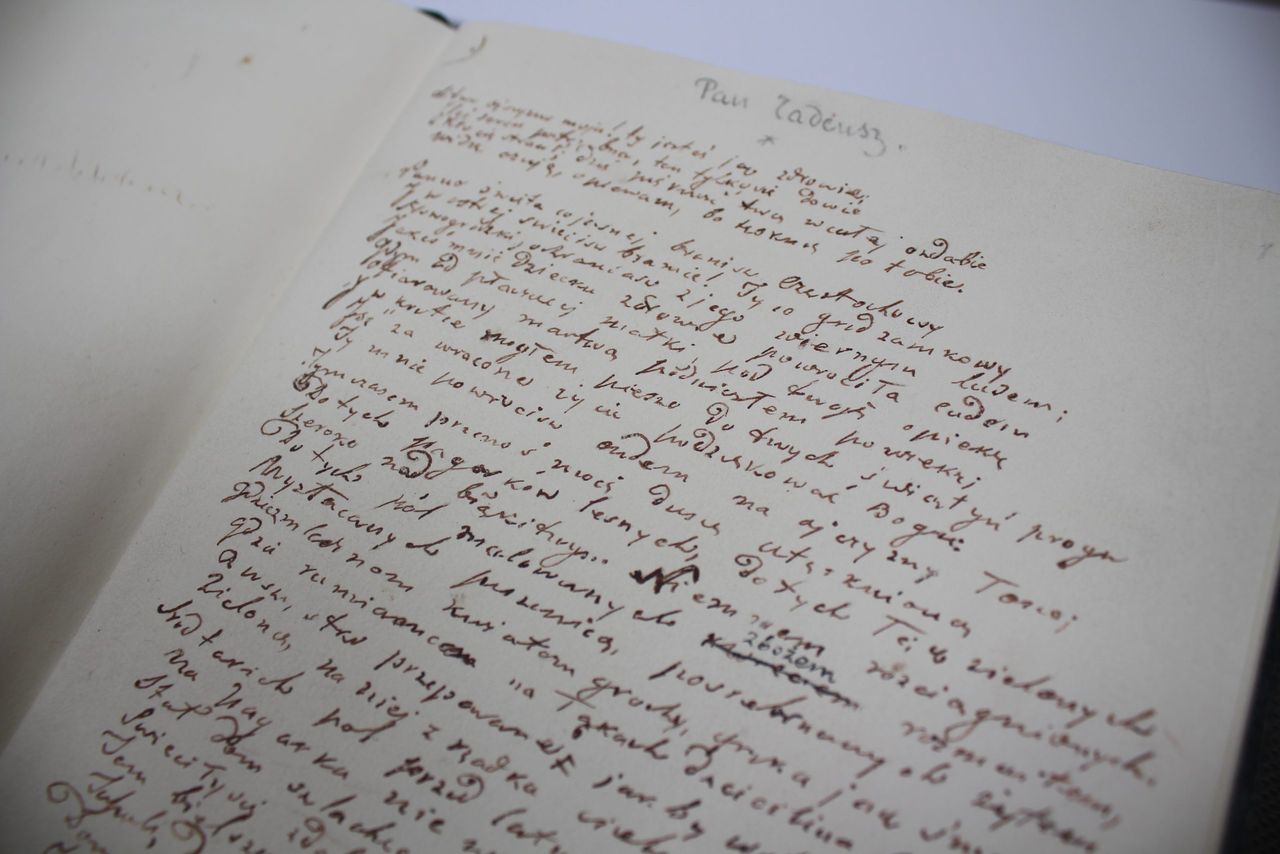 Pan Tadeusz.
*
ojczyzno moja! ty jesteś jak zdrowie;
potrzeba, ten tylko się dowie
Kto cię stracił. Dziś piękność twą w całej ozdobie
widzę czuję, opiewam, bo tęsknię po tobie.
Panno święta co jasnej bronisz Częstochowy
I w ostrej świecisz bramie! Ty co gród zamkowy
Nowogródzki, ochraniasz z jego wiernym ludem;
Jakeś mnie dziecko zdrowie powróciła cudem
Gdym od płaczącej matki, pod twoją opiekę
Ofiarowany martwą podniosłem powiekę;
I wkrótce mogłem pieszo do twych świątyń progu
Iść za wrócone życie podziękować Bogu:
Ty mnie powrócisz cudem na ojczyzny łono;
Tymczasem przenoś moją duszę utęsknioną
Do tych pagórków leśnych, do tych łąk zielonych
Szeroko nad błękitnym Niemnem rozciągnionych.
Do tych pól malowanych zbożem rozmaitem,
Wyzłacanych pszenicą, posrebrzanych żytem
gdzie kwiatem grochy, gryka jak
gdzie rumiancem na łąkach dzięcielina
A wszystko przepasane jak by
Zieloną, na niej z rzadka
Śród takich pól przed laty
Na pagórku nie
Stał dom
Świeciły się
Tem